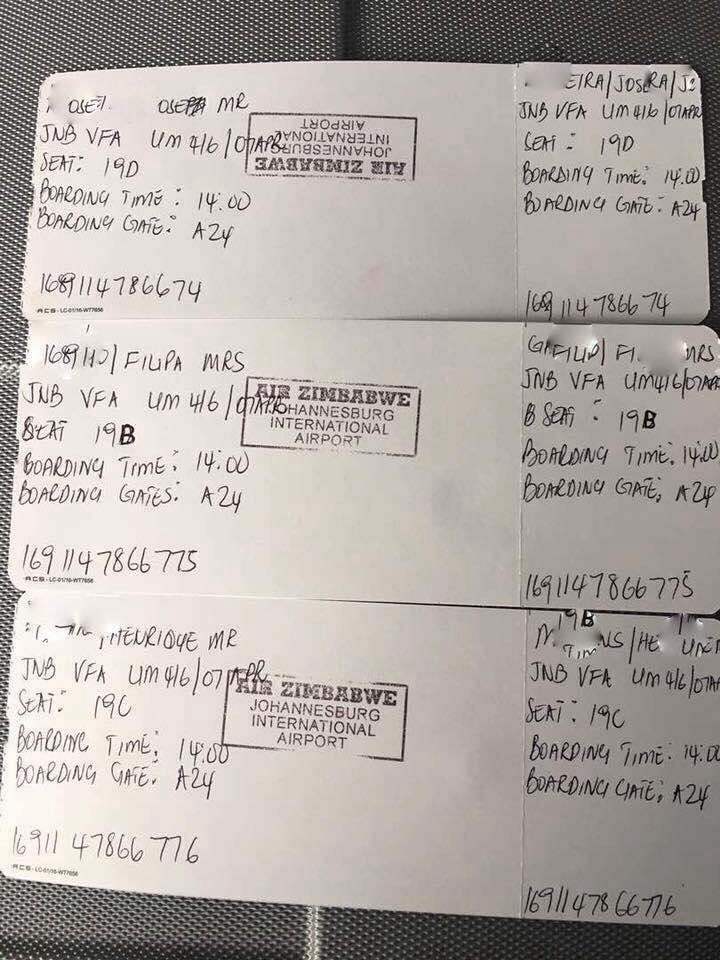 MR
JNB VFA UM 416/07APR
SEAT: 19D
BOARDING TIME: 14:00
BOARDING GATE: A24
168911478 6674
ACS - LC-01/16-WT7656
AIR ZIMBABWE
JOHANNESBURG
INTERNATIONAL
AIRPORT
EIRA/JOSE
JNB VFA UM 416/07APR
SEAT: 19D
BOARDING TIME: 14:00
BOARDING GATE: A24
114786674
/FILIPA MRS
JNB VFA UM 416/07APR
SEAT 19B
BOARDING TIME: 14:00
BOARDING GATES: A24
1691147866775
ACS - LC-01/16-WT7656
AIR ZIMBABWE
JOHANNESBURG
INTERNATIONAL
AIRPORT
MRS
JNB VFA UM416/07APR
B SEAT: 19B
BOARDING TIME: 14:00
BOARDING GATE: A24
1691147866775
/HENRIQUE MR
JNB VFA UM 416/07APR
SEAT: 19C
BOARDING TIME: 14:00
BOARDING GATE: A24
16911 47866 776
ACS - LC-01/16-WT7656
AIR ZIMBABWE
JOHANNESBURG
INTERNATIONAL
AIRPORT
19B
NS/HE
JNB VFA UM 416/07AP
SEAT: 19C
BOARDING TIME: 14:00
BOARDING GATE: A24
1691147866776